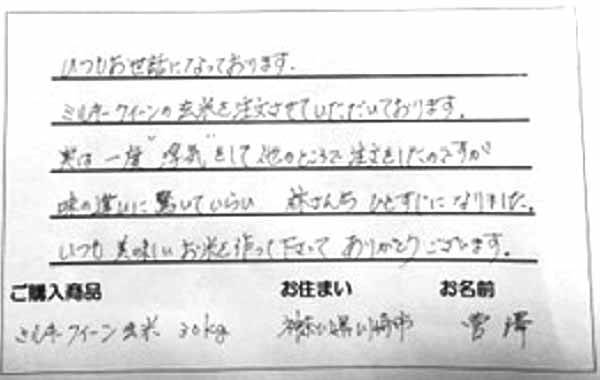 いつもお世話になっております。
ミルキークイーンの玄米を注文させていただいております。
実は一度"浮気"をして他のところで注文をしたのですが
味の違いに驚いていらい 林さんち ひとすじになりました。
いつも美味しいお米を作って下さって ありがとうございます。
ご購入商品 お住まい お名前
ミルキークイーン玄米 30kg 神奈川県川崎市 菅澤